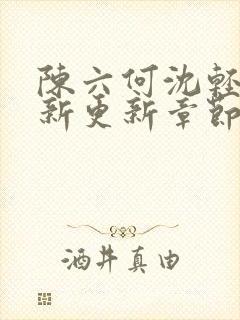 陳六何沈輕
新更新章節
酒井真由